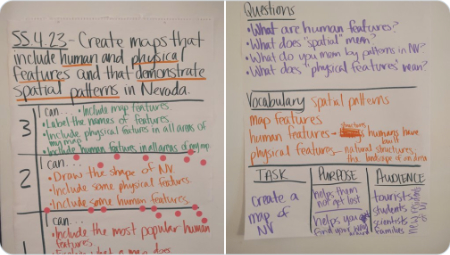 SS.4.23- Create maps that
include human and physical
features and that demonstrate
spatial patterns in Nevada.
3
I can... • Include map features.
• Label the names of features
• Include physical features in all areas of
my map
• Include human features in all areas of my map
2
I can...
• Draw the shape of NV
• Include some physical features
• Include some human features
1
I can...
• Include the most popular human
features
Questions
• What are human features?
• What does "spatial" mean?
• What do you mean by patterns in NV?
• What does "physical features" mean?
Vocabulary spatial patterns
map features
human features - structures humans have
built
physical features - natural structures;
the landscape of an area
TASK
create a
map of
NV
PURPOSE
helps them
not get lost
helps you
find your
AUDIENCE
tourists
students
scientists
families
new
of NV